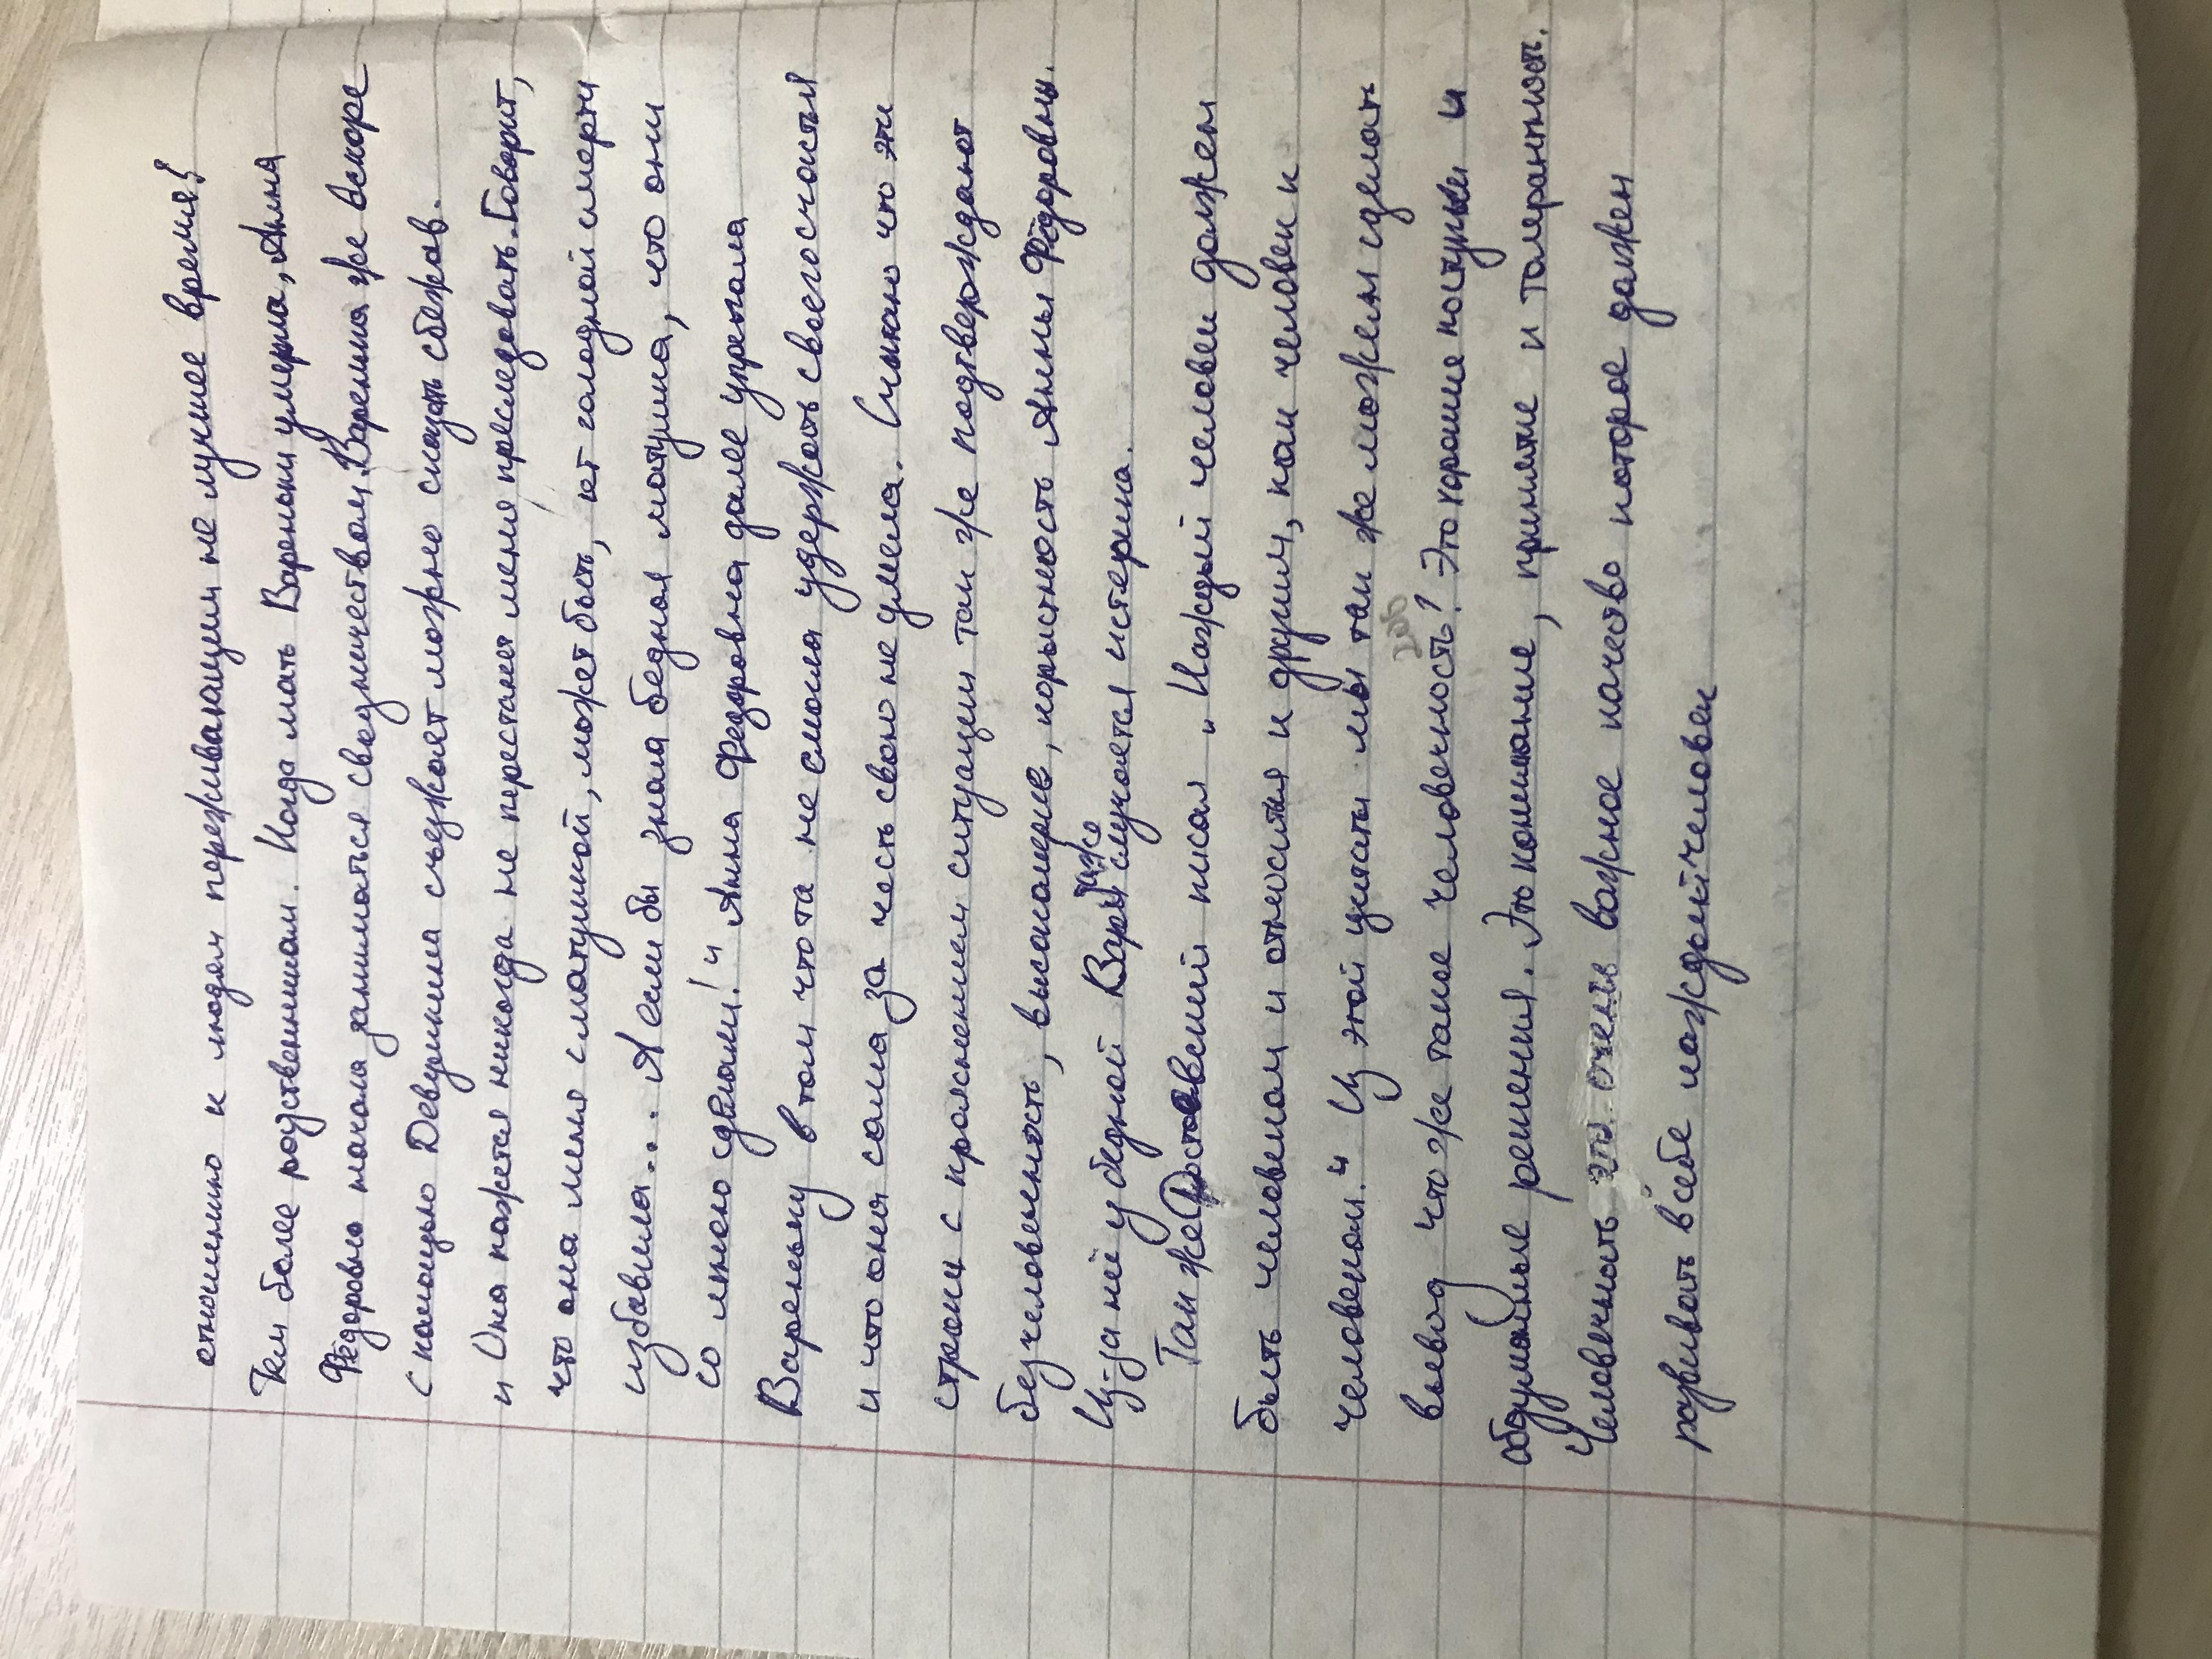 отношению к людям переживающим не лучшее время!
Тем более родственникам. Когда мать Вареньки умерла, Анна
Фёдоровна начала заниматься сводничеством. Варенька же вскоре
с помощью Девушкина съезжает можно сказать сбежав.
и Она кажется никогда не перестанет меня преследовать. Говорит,
что она меня с матушкой, может быть, от голодной смерти
избавила... А если бы знала бедная матушка, что они
со мною сделали!" Анна Федоровна далее упрекала
Вареньку в том что та не смогла удержать своего счастья
и что она сама за честь свою не умела. Считаю что эти
строки с прояснением ситуации так же подтверждают
бесчеловечность, высокомерие, корыстность Анны Фёдоровны.
Из-за неё у бедной Вари даже случается истерика.
Так же Достоевский писал „Каждый человек должен
быть человеком и относиться к другим, как человек к
человеком." Из этой цитаты мы так же можем сделать
вывод что же такое человечность? Это хорошие поступки и
обдуманные решения. Это понимание, принятие и толерантность.
Человечность это очень важное качество которое должен
развивать в себе каждый человек